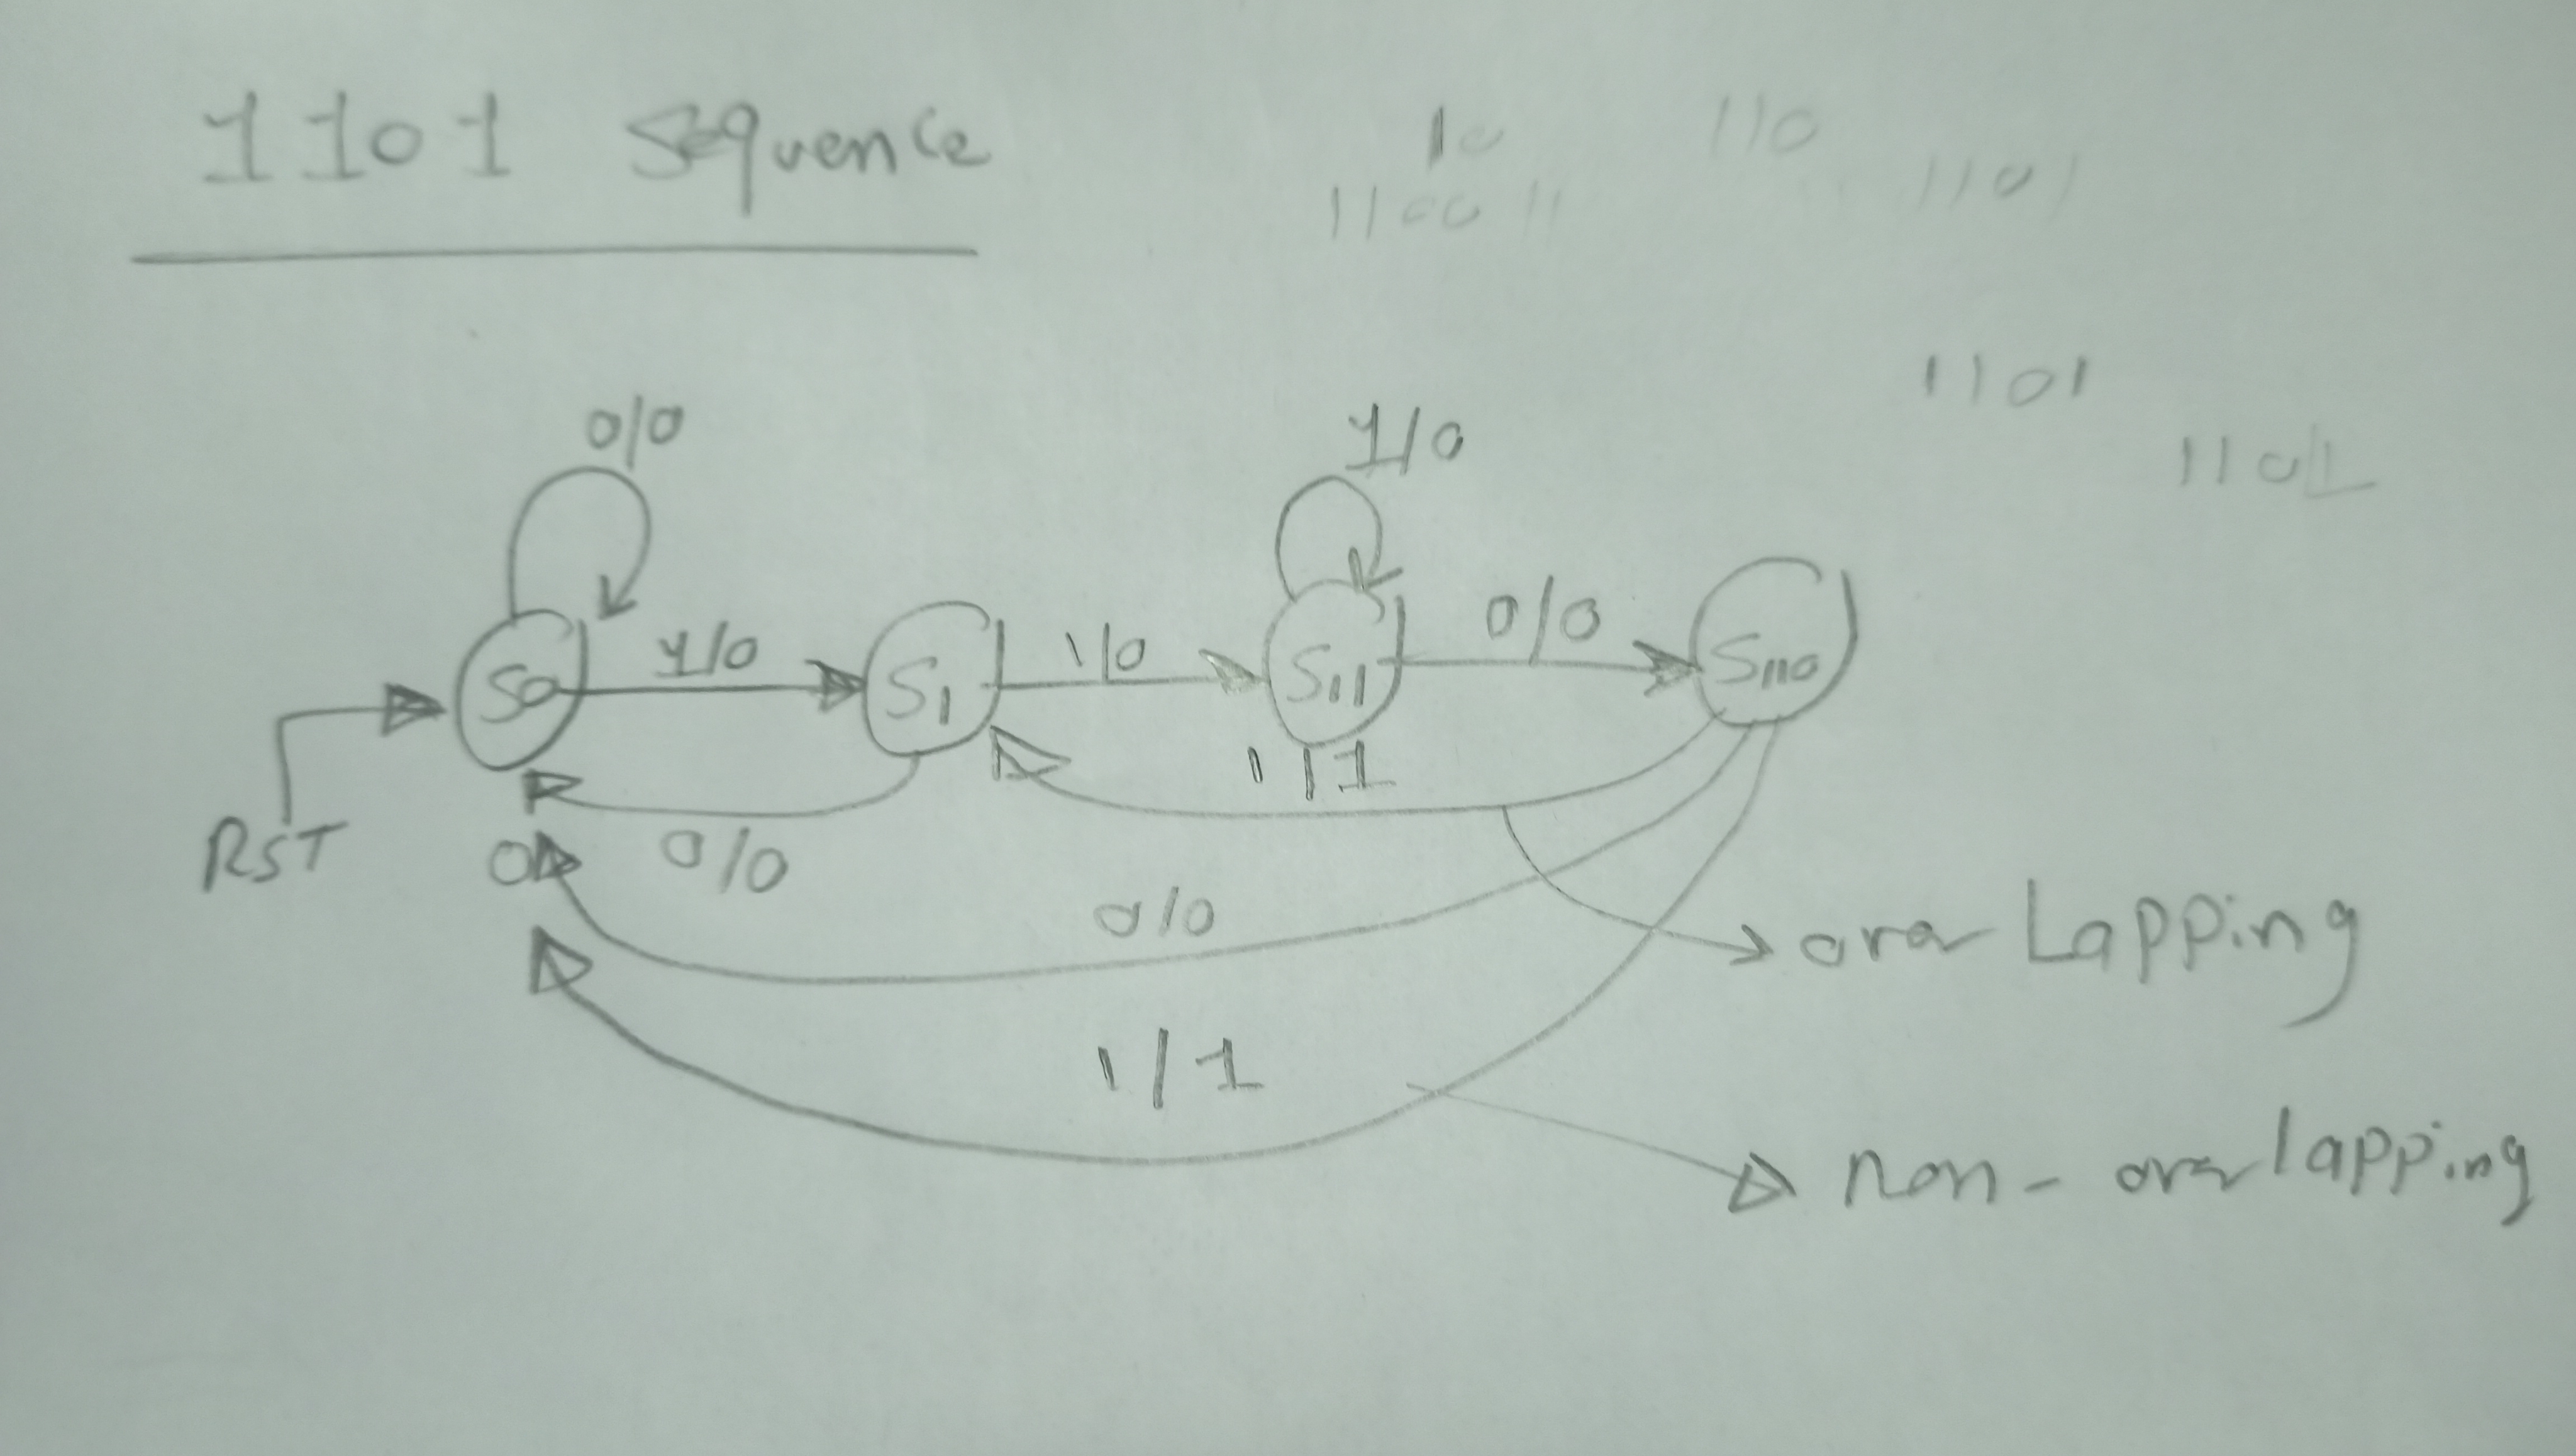 1101 Sequence
10
110
1101
110011
1101
1101
0/0
1/0
S0
1/0
S1
1/0
S11
0/0
S110
RST
0
0/0
1/1
0/0
over Lapping
1/1
non-overlapping